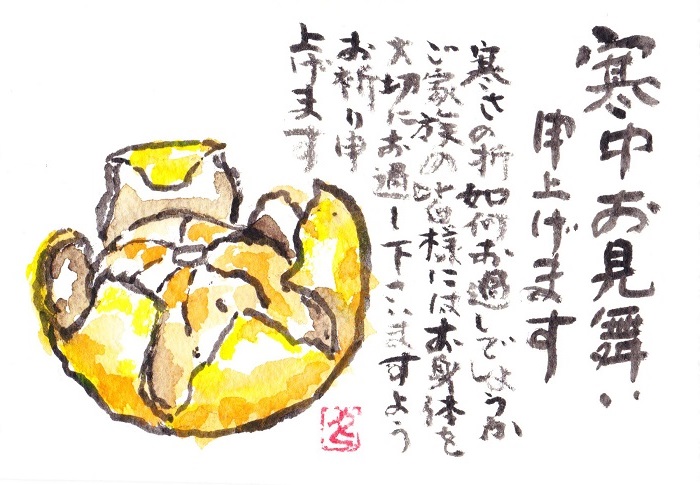 寒中お見舞い
申上げます
寒さの折如何お過しでしょうか
ご家族の皆様にはお身体を
大切にお過し下さいますよう
お祈り申
上げます